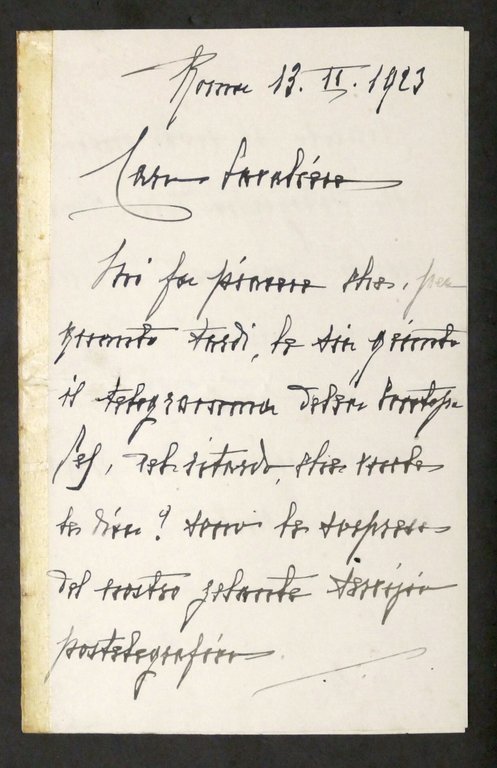 Roma 13. II. 1923
Caro Cavaliére
Mi fa piacere che, per
quanto tardi, le sia giunto
il telegramma della
del ritardo, che vuole
le dire? sono le sorprese
del nostro zelante servizio
postelegrafico.